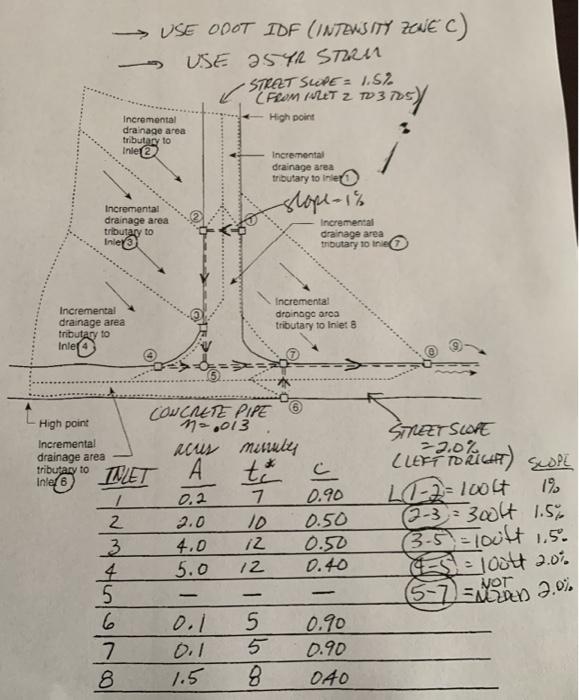 → USE ODOT IDF (INTENSITY ZONE C)
→ USE 25 YR STORM
STREET SLOPE = 1.5%
(FROM INLET 2 TO 3 TO 5)
High point
Incremental
drainage area
tributary to
Inlet 2
Incremental
drainage area
tributary to Inlet 1
slope = 1%
Incremental
drainage area
tributary to
Inlet 3
Incremental
drainage area
tributary to Inlet 7
2
1
Incremental
drainage area
tributary to Inlet 8
Incremental
drainage area
tributary to
Inlet 4
3
4
5
7
8
9
6
High point
Incremental
drainage area
tributary to
Inlet 6
CONCRETE PIPE
n = .013
STREET SLOPE
= 2.0%
(LEFT TO RIGHT)
acres minutes
INLET A tc* C
1 0.2 7 0.90
2 2.0 10 0.50
3 4.0 12 0.50
4 5.0 12 0.40
5 — — —
6 0.1 5 0.90
7 0.1 5 0.90
8 1.5 8 0.40
SLOPE
L 1-2 = 100ft 1%
2-3 = 300ft 1.5%
3-5 = 100ft 1.5%
4-5 = 100ft 2.0%
5-7 = NOT NEEDED 2.0%